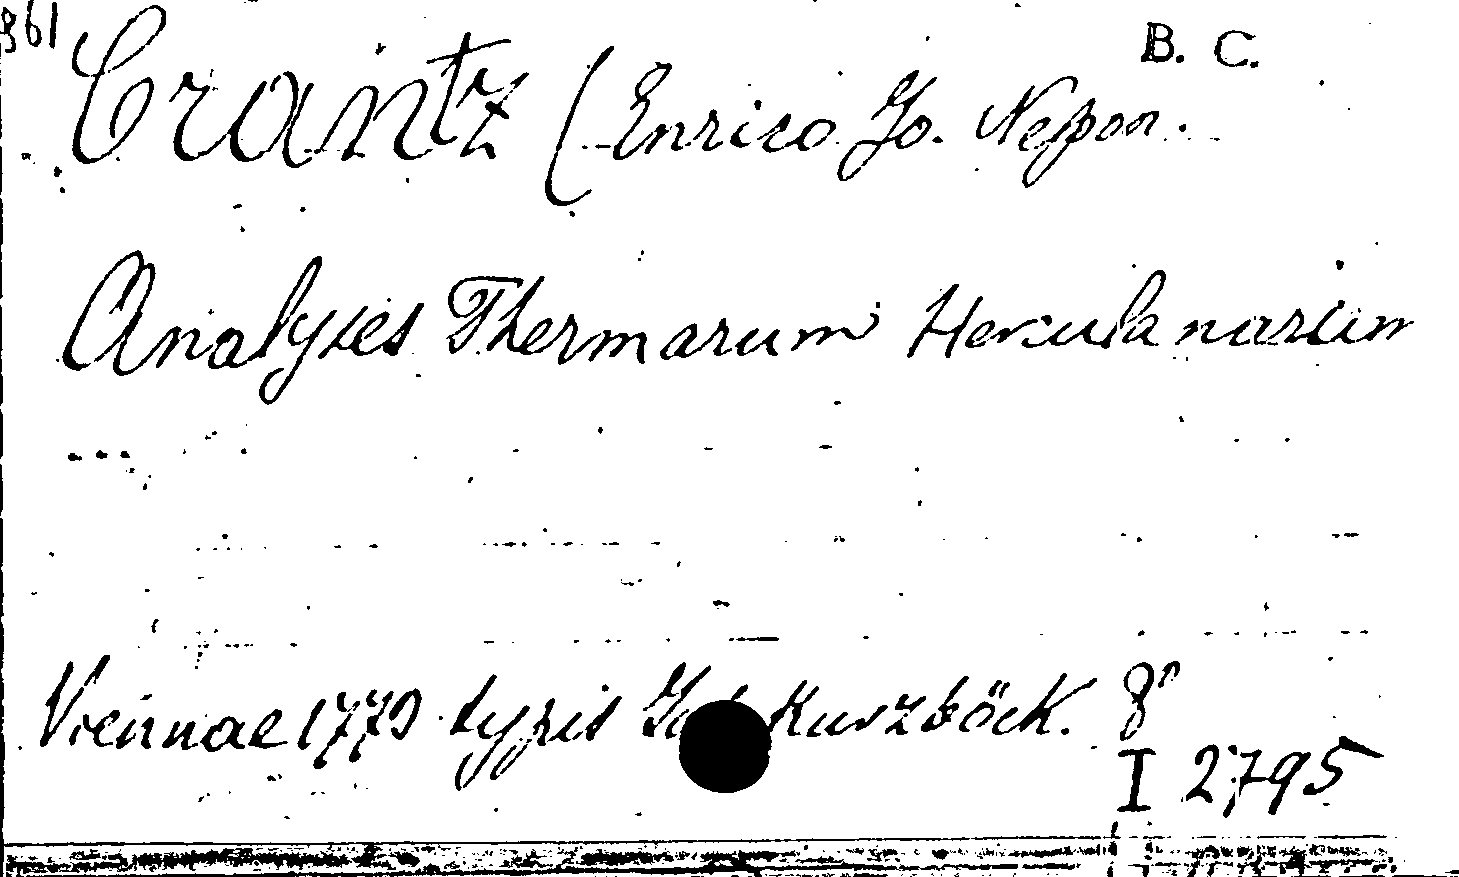 861
B. C.
Crantz (Enrico Jo. Nepon.
Analyses Thermarum Herculanarum
...
Viennae 1773 typis Kurzböck. 8°
I 2795